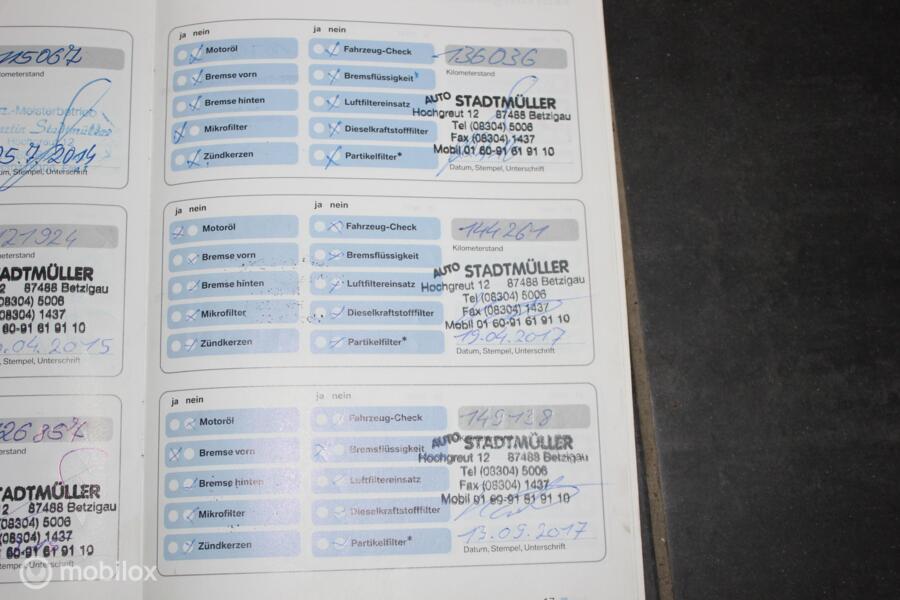 115067
lometerstand
rz.-Meisterbetrieb
artin Stadtmüller
25.7.2014
um, Stempel, Unterschrift
121924
meterstand
TADTMÜLLER
12 87488 Betzigau
(08304) 5006
08304) 1437
60-91 61 91 10
.04.2015
, Stempel, Unterschrift
126857
erstand
TADTMÜLLER
2 87488 Betzigau
08304) 5006
08304) 1437
60-91 61 91 10
Unterschrift
ja nein
ja nein
Motoröl
Fahrzeug-Check
136036
Bremse vorn
Bremsflüssigkeit
Kilometerstand
Bremse hinten
Luftfiltereinsatz
AUTO STADTMÜLLER
Hochgreut 12 87488 Betzigau
Mikrofilter
Dieselkraftstofffilter
Tel (08304) 5006
Fax (08304) 1437
Zündkerzen
Partikelfilter*
Mobil 01 60-91 61 91 10
Datum, Stempel, Unterschrift
ja nein
ja nein
Motoröl
Fahrzeug-Check
144261
Bremse vorn
Bremsflüssigkeit
Kilometerstand
Bremse hinten
Luftfiltereinsatz
AUTO STADTMÜLLER
Hochgreut 12 87488 Betzigau
Mikrofilter
Dieselkraftstofffilter
Tel (08304) 5006
Fax (08304) 1437
Mobil 01 60-91 61 91 10
Zündkerzen
Partikelfilter*
19.04.2017
Datum, Stempel, Unterschrift
ja nein
ja nein
Motoröl
Fahrzeug-Check
149138
Bremse vorn
Bremsflüssigkeit
AUTO STADTMÜLLER
Hochgreut 12 87488 Betzigau
Bremse hinten
Luftfiltereinsatz
Tel (08304) 5006
Fax (08304) 1437
Mikrofilter
Dieselkraftstofffilter
Mobil 01 60-91 61 91 10
Zündkerzen
Partikelfilter*
13.09.2017
Datum, Stempel, Unterschrift
17
mobilox